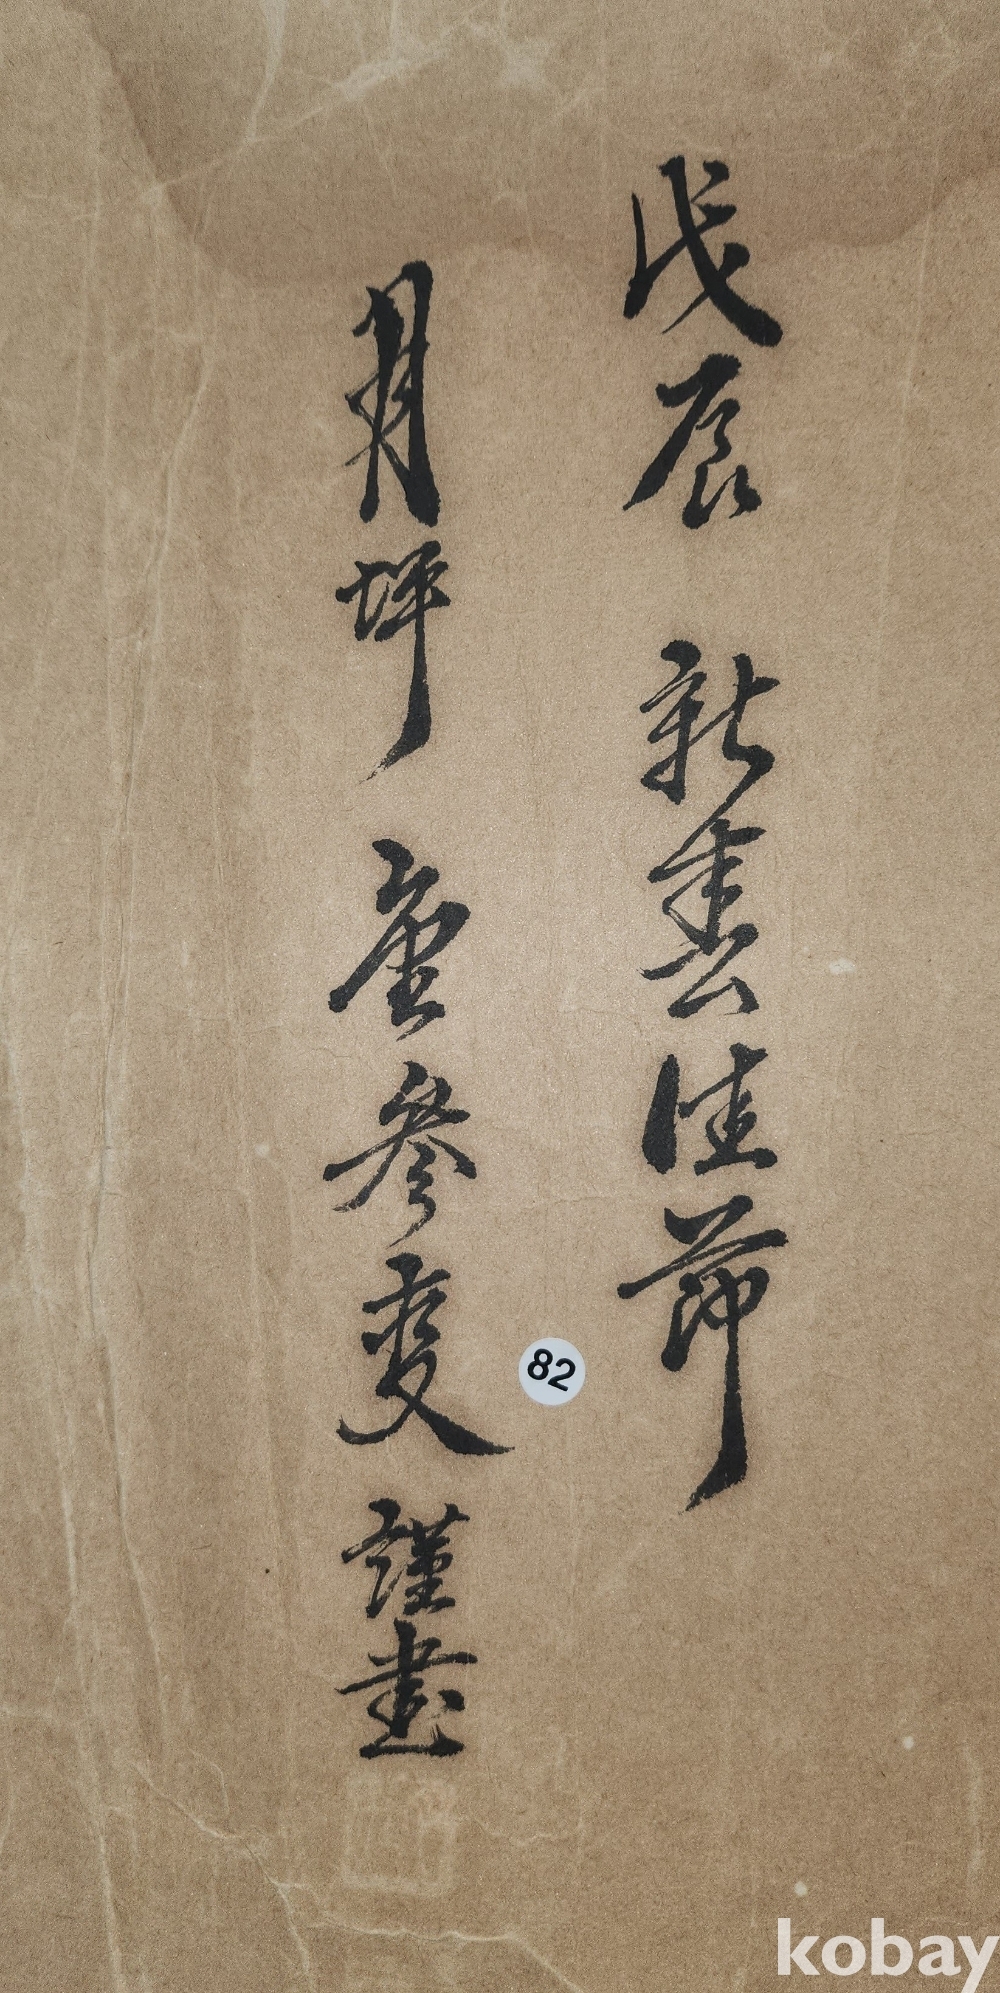 戊辰 新春佳節
月坪 童參奱 謹畫
82
kobay